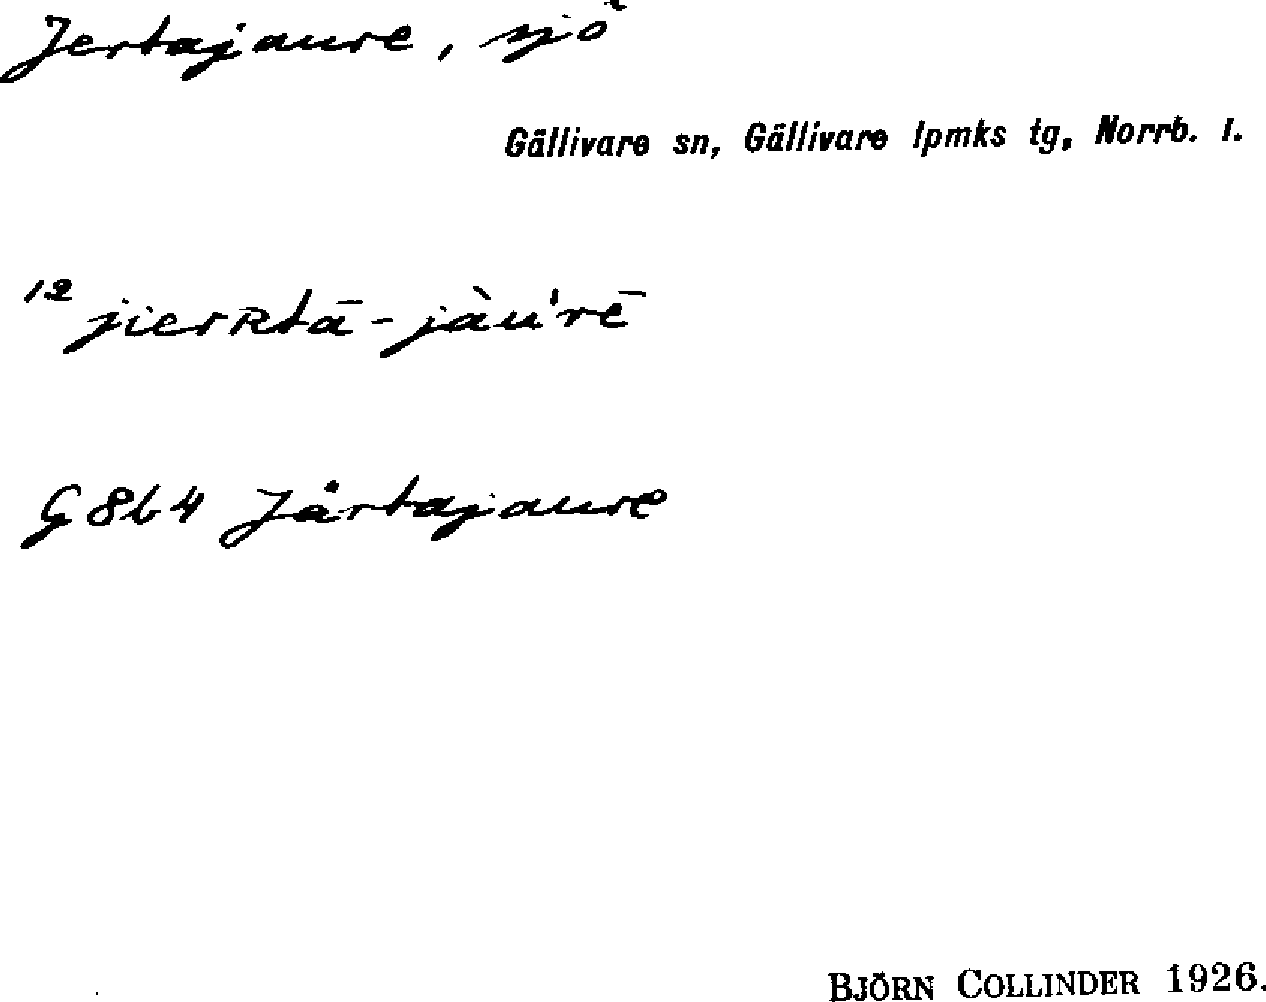 Jertajaure, sjö
Gällivare sn, Gällivare lpmks tg, Norrb. l.
12 jierʀtā-jàu'rē
G864 Jårtajaure
BJÖRN COLLINDER 1926.